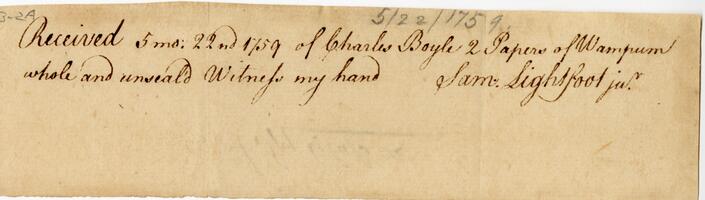 3-2A
5/22/1759
Received 5 mo: 22nd 1759 of Charles Boyle 2 Papers of Wampum
whole and unseald Witness my hand Sam: Lightfoot jur